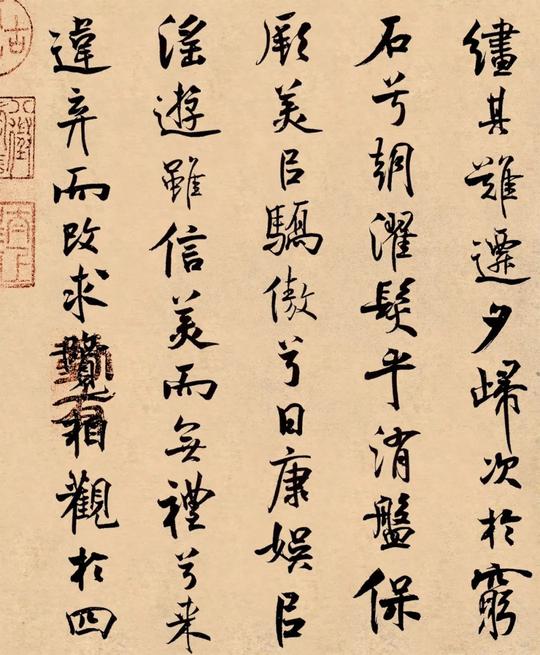 繣其難遷夕歸次於窮
石兮朝濯髮乎洧盤保
厥美㠯驕傲兮日康娱㠯
淫遊雖信美而無禮兮来
違弃而改求覽相觀於四